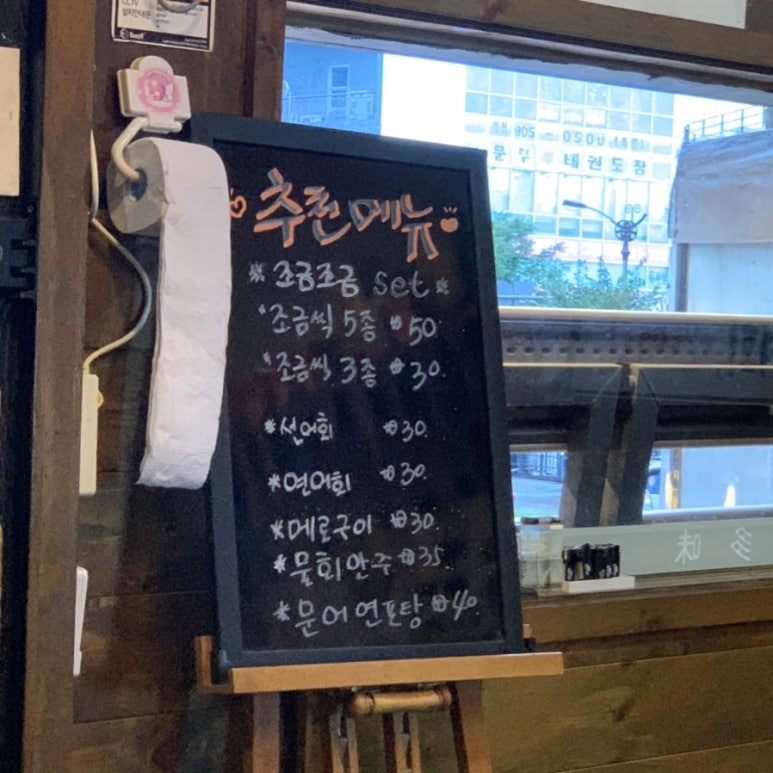 CCTV
설치안내문
추천메뉴
* 조금조금 set *
*조금씩 5종 ₩50.
*조금씩 3종 ₩30.
*선어회 ₩30.
*연어회 ₩30.
*메로구이 ₩30.
*물회안주 ₩35.
*문어연포탕 ₩40.
905-0500
태권도장
多味